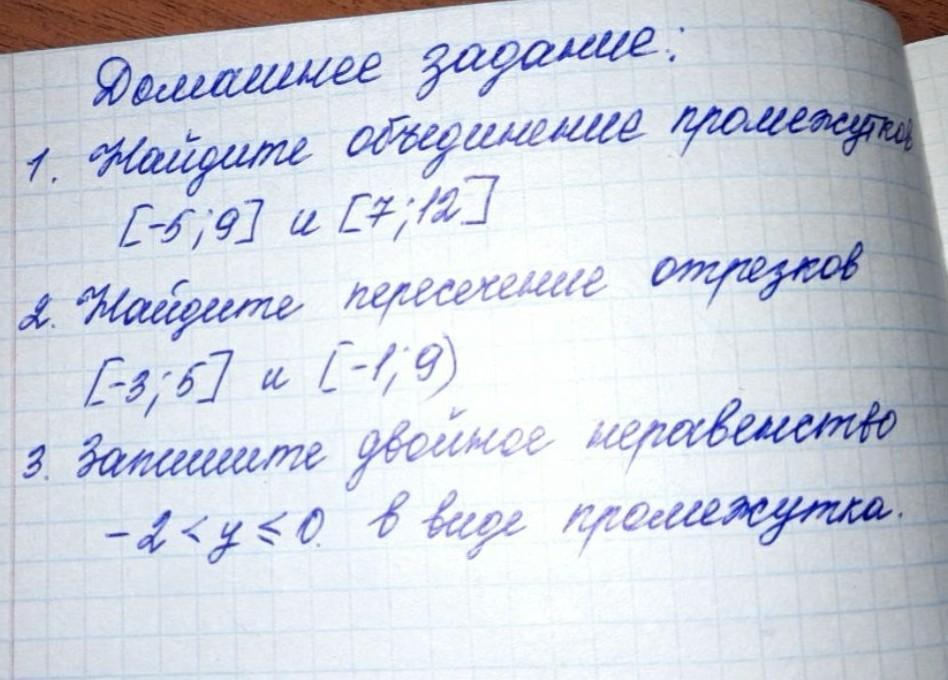 Домашнее задание:
1. Найдите объединение промежутков
[-5;9] и [7;12]
2. Найдите пересечение отрезков
[-3;5] и [-1;9)
3. Запишите двойное неравенство
-2 < y ≤ 0. в виде промежутка.